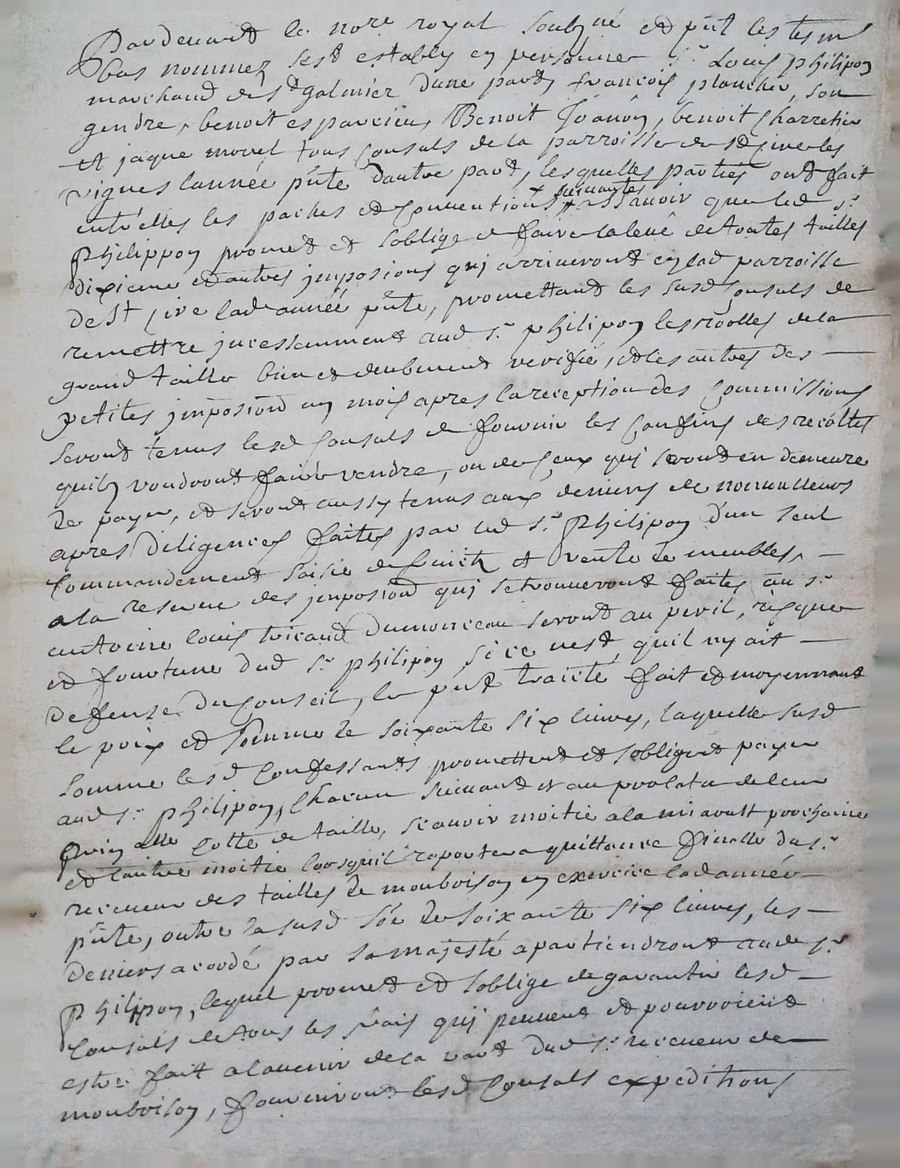 Pardevant le nore royal soubné et pnt les tesm
bas nommez sest estably en personne Sr Louis philipon
marchand de St galmier dune part, francois planchet, son
gendre, benoit esparcieu, Benoit Joanon, benoit Charretier
et jaque morel tous Consuls de la parroisse de St Cire les
vignes lannée pnte dautre part, lesquelles parties ont fait
entr'elles les paches et conventions suivantes sçavoir que led sr
Philippon promet et soblige de faire la levé de toutes tailles
dixieme et autres imposions qui arriveront en lad parroisse
de St Cire lad année pnte, promettant les susd Consuls de
remettre incessamment aud sr philipon les roolles de la
grand taille bien et deubment verifié, et les autres des
petites imposions un mois apres la reception des Commissions
seront tenus lesd Consuls de fournir les Confins des recoltes
quils voudront faire vendre, ou de Ceux qui seront en demeure
de payer, et seront aussy tenus aux deniers de non valleurs
apres diligences faites par led sr Philipon d'un seul
Commandement saisie de fruits et vente de meubles,
a la reserve des imposions qui se trouveront faites au sr
antoine louis tricaud dumonceau seront au peril, risque
et fourtune dud sr philipon, si ce nest, quil ny ait
deffense du Conseil, le pnt traicté fait et moyennant
le prix et somme de soixante six livres, laquelle susd
somme lesd Confessants promettent et sobligent payer
aud sr philipon, Chacun suivant et au prolata de leur
cotte de taille, scavoir moitie a la mi aoust prochaine
et lautre moitie lorsquil raportera quittance finalle du sr
receveur des tailles de monboison en exercice lad année
pnte, outre la susd sôe de soixante six livres, les
deniers acordé par sa majesté apartiendront aud sr
Philippon, lequel promet et soblige de garantir lesd
Consuls de tous les frais qui peuvent et pourroient
estre fait a lavenir de la part dud sr receveur de
monboison, fourniront lesd Consuls expeditions